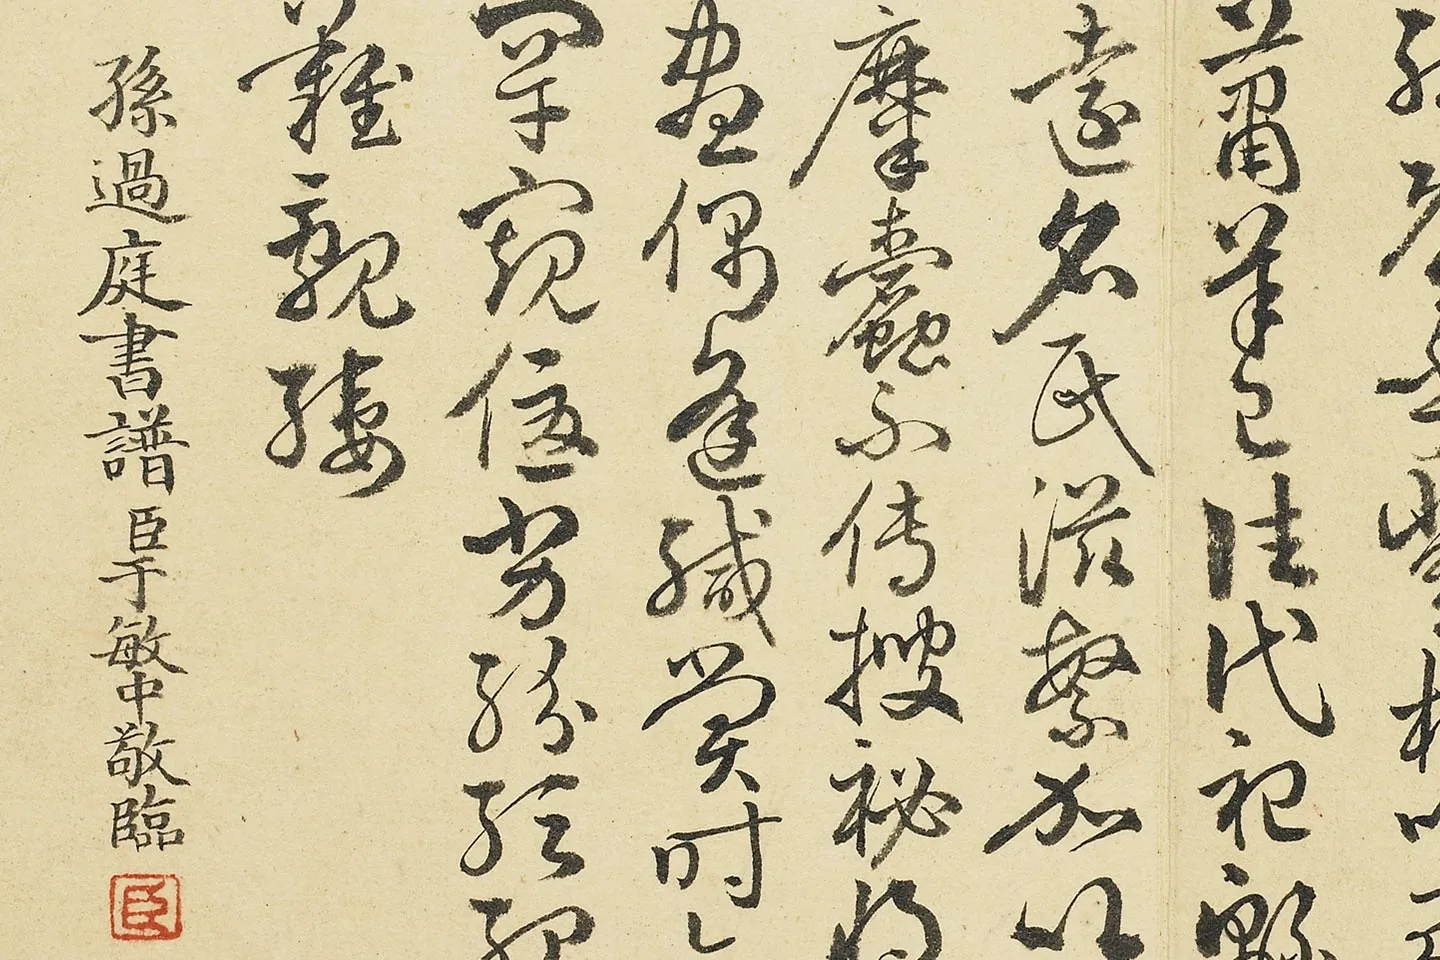 蕭羊已往代祀緜
遠名氏滋繁加以
糜蠹不傳搜祕將
盡偶逢緘賞時
罕窺優劣紛紜
難覼縷
孫過庭書譜臣于敏中敬臨
臣